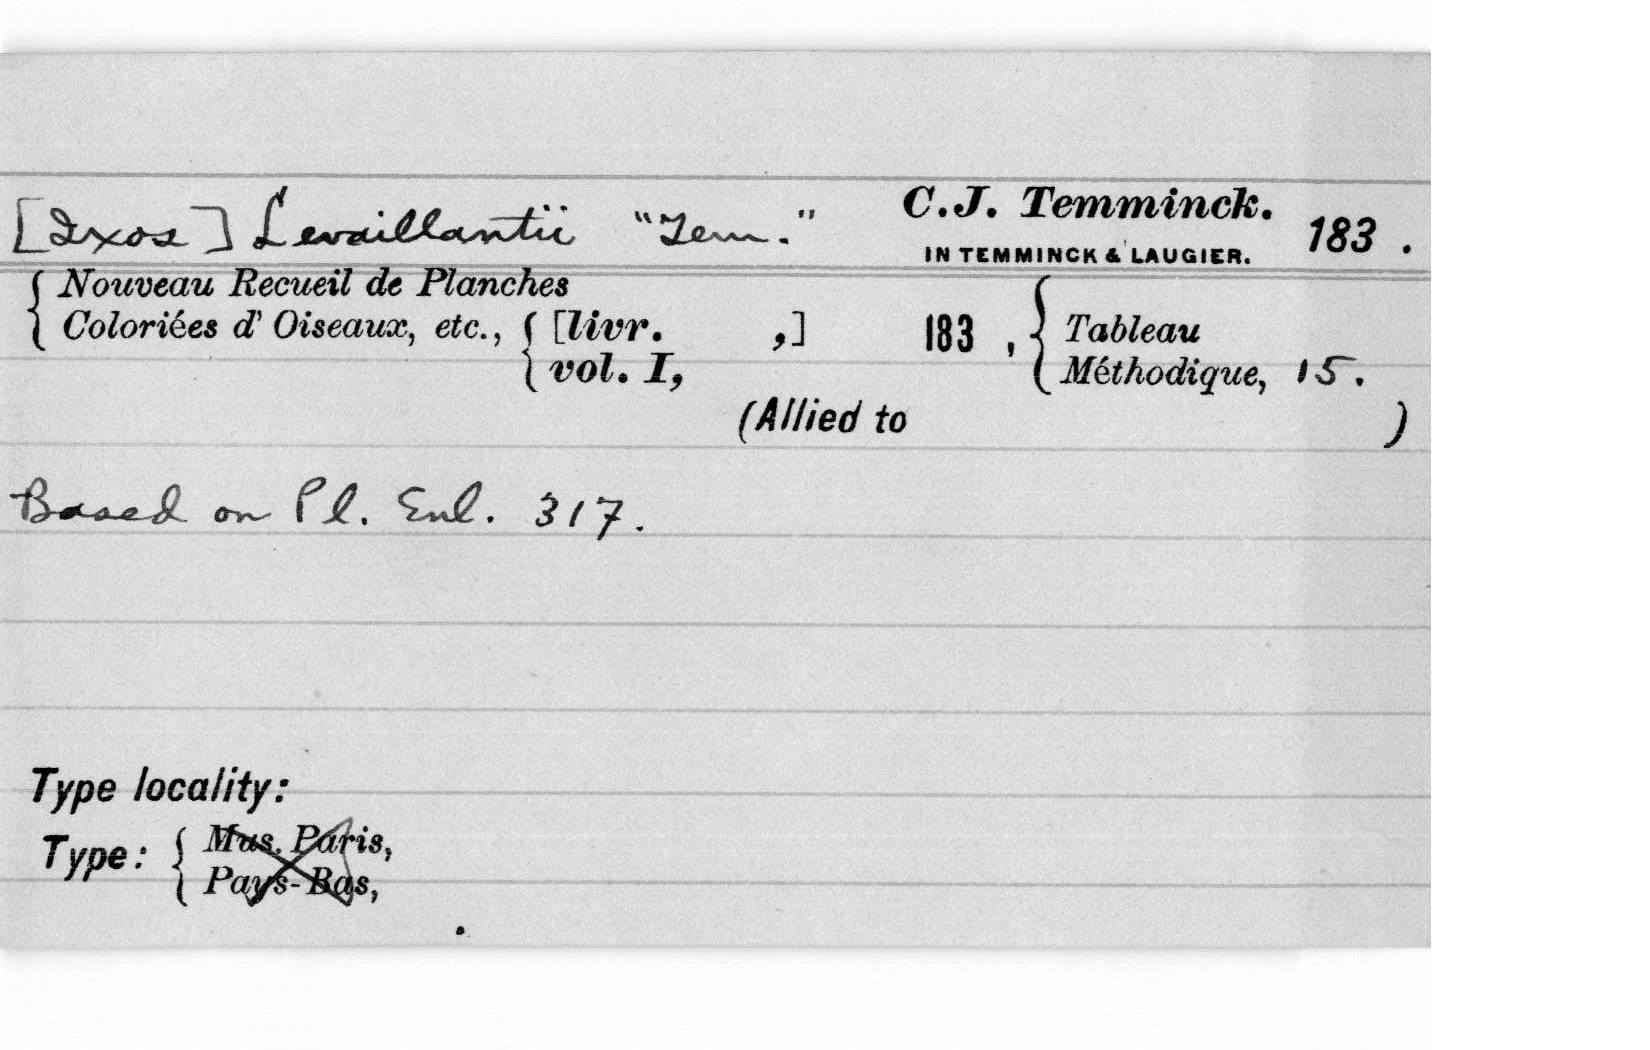 [Ixos] Levaillantii "Tem." C.J. Temminck. 183 .
IN TEMMINCK & LAUGIER.
{ Nouveau Recueil de Planches
Coloriées d' Oiseaux, etc., { [livr. ,] 183 , { Tableau
vol. I, Méthodique, 15.
(Allied to )
Based on Pl. Enl. 317.
Type locality:
Type: { Mus. Paris,
Pays-Bas,
.